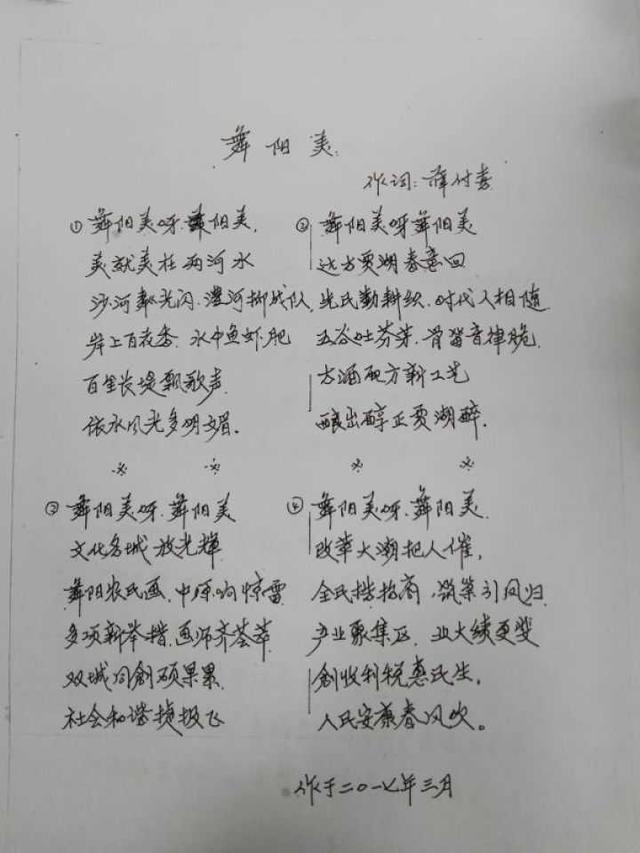 舞阳美
作词:薛付专
① 舞阳美呀.舞阳美,
美就美在两河水
沙河粼光闪.澧河柳成队,
岸上百花香.水中鱼虾肥
百里长堤飘歌声
依水风光多明媚.
② 文化名城放光辉
舞阳美呀.舞阳美
舞阳农民画.中原响惊雷
多项新举措.画师齐荟萃
双城同创硕果累
社会和谐捷报飞
③ 舞阳美呀舞阳美
远古贾湖春意回
先民勤耕织.时代人相随
五谷吐芬芽.骨笛音律脆.
古酒配方新工艺
酿出醇正贾湖醉.
④ 舞阳美呀.舞阳美.
改革大潮把人催,
全民搞招商.筑巢引凤归.
产业聚集区.业大绩更斐
创收利税惠民生,
人民安康春风吹。
作于二〇一七年三月